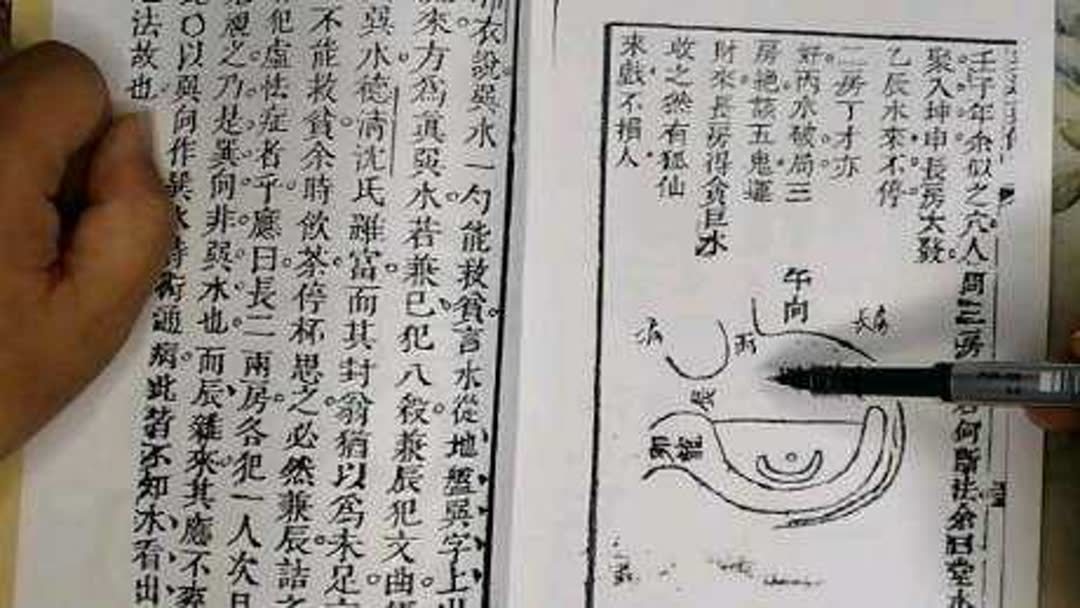 壬子年余似之穴人問三房名何斷法余曰堂水
聚入坤申長房大發
乙辰水來不停
二房丁才亦
好丙水破局三
房絕該五鬼運
財來長房得貪巨水
收之然有狐仙
來戲不損人
午向
長房
丙
辰
卯龍
衣說巽水一勺能救貧言水從地盤巽字上出
來方為真巽水若兼巳犯八殺兼辰犯文曲
巽水德清沈氏雖富而其封翁猶以為未足
不能救貧余時飲茶停杯思之必然兼辰詰之
犯虛怯症者乎應曰長二兩房各犯一人次日
視之乃是巽向非巽水也而辰雜來其應不爽
〇以巽向作巽水時術通病此皆不知水看出
法故也